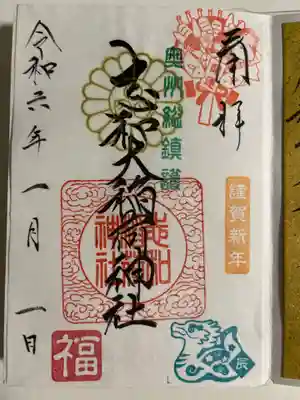 奉拝
奥州総鎮護
志和大稲荷神社
志和
稲荷
神社
謹賀新年
辰
令和六年 一月 一日
福